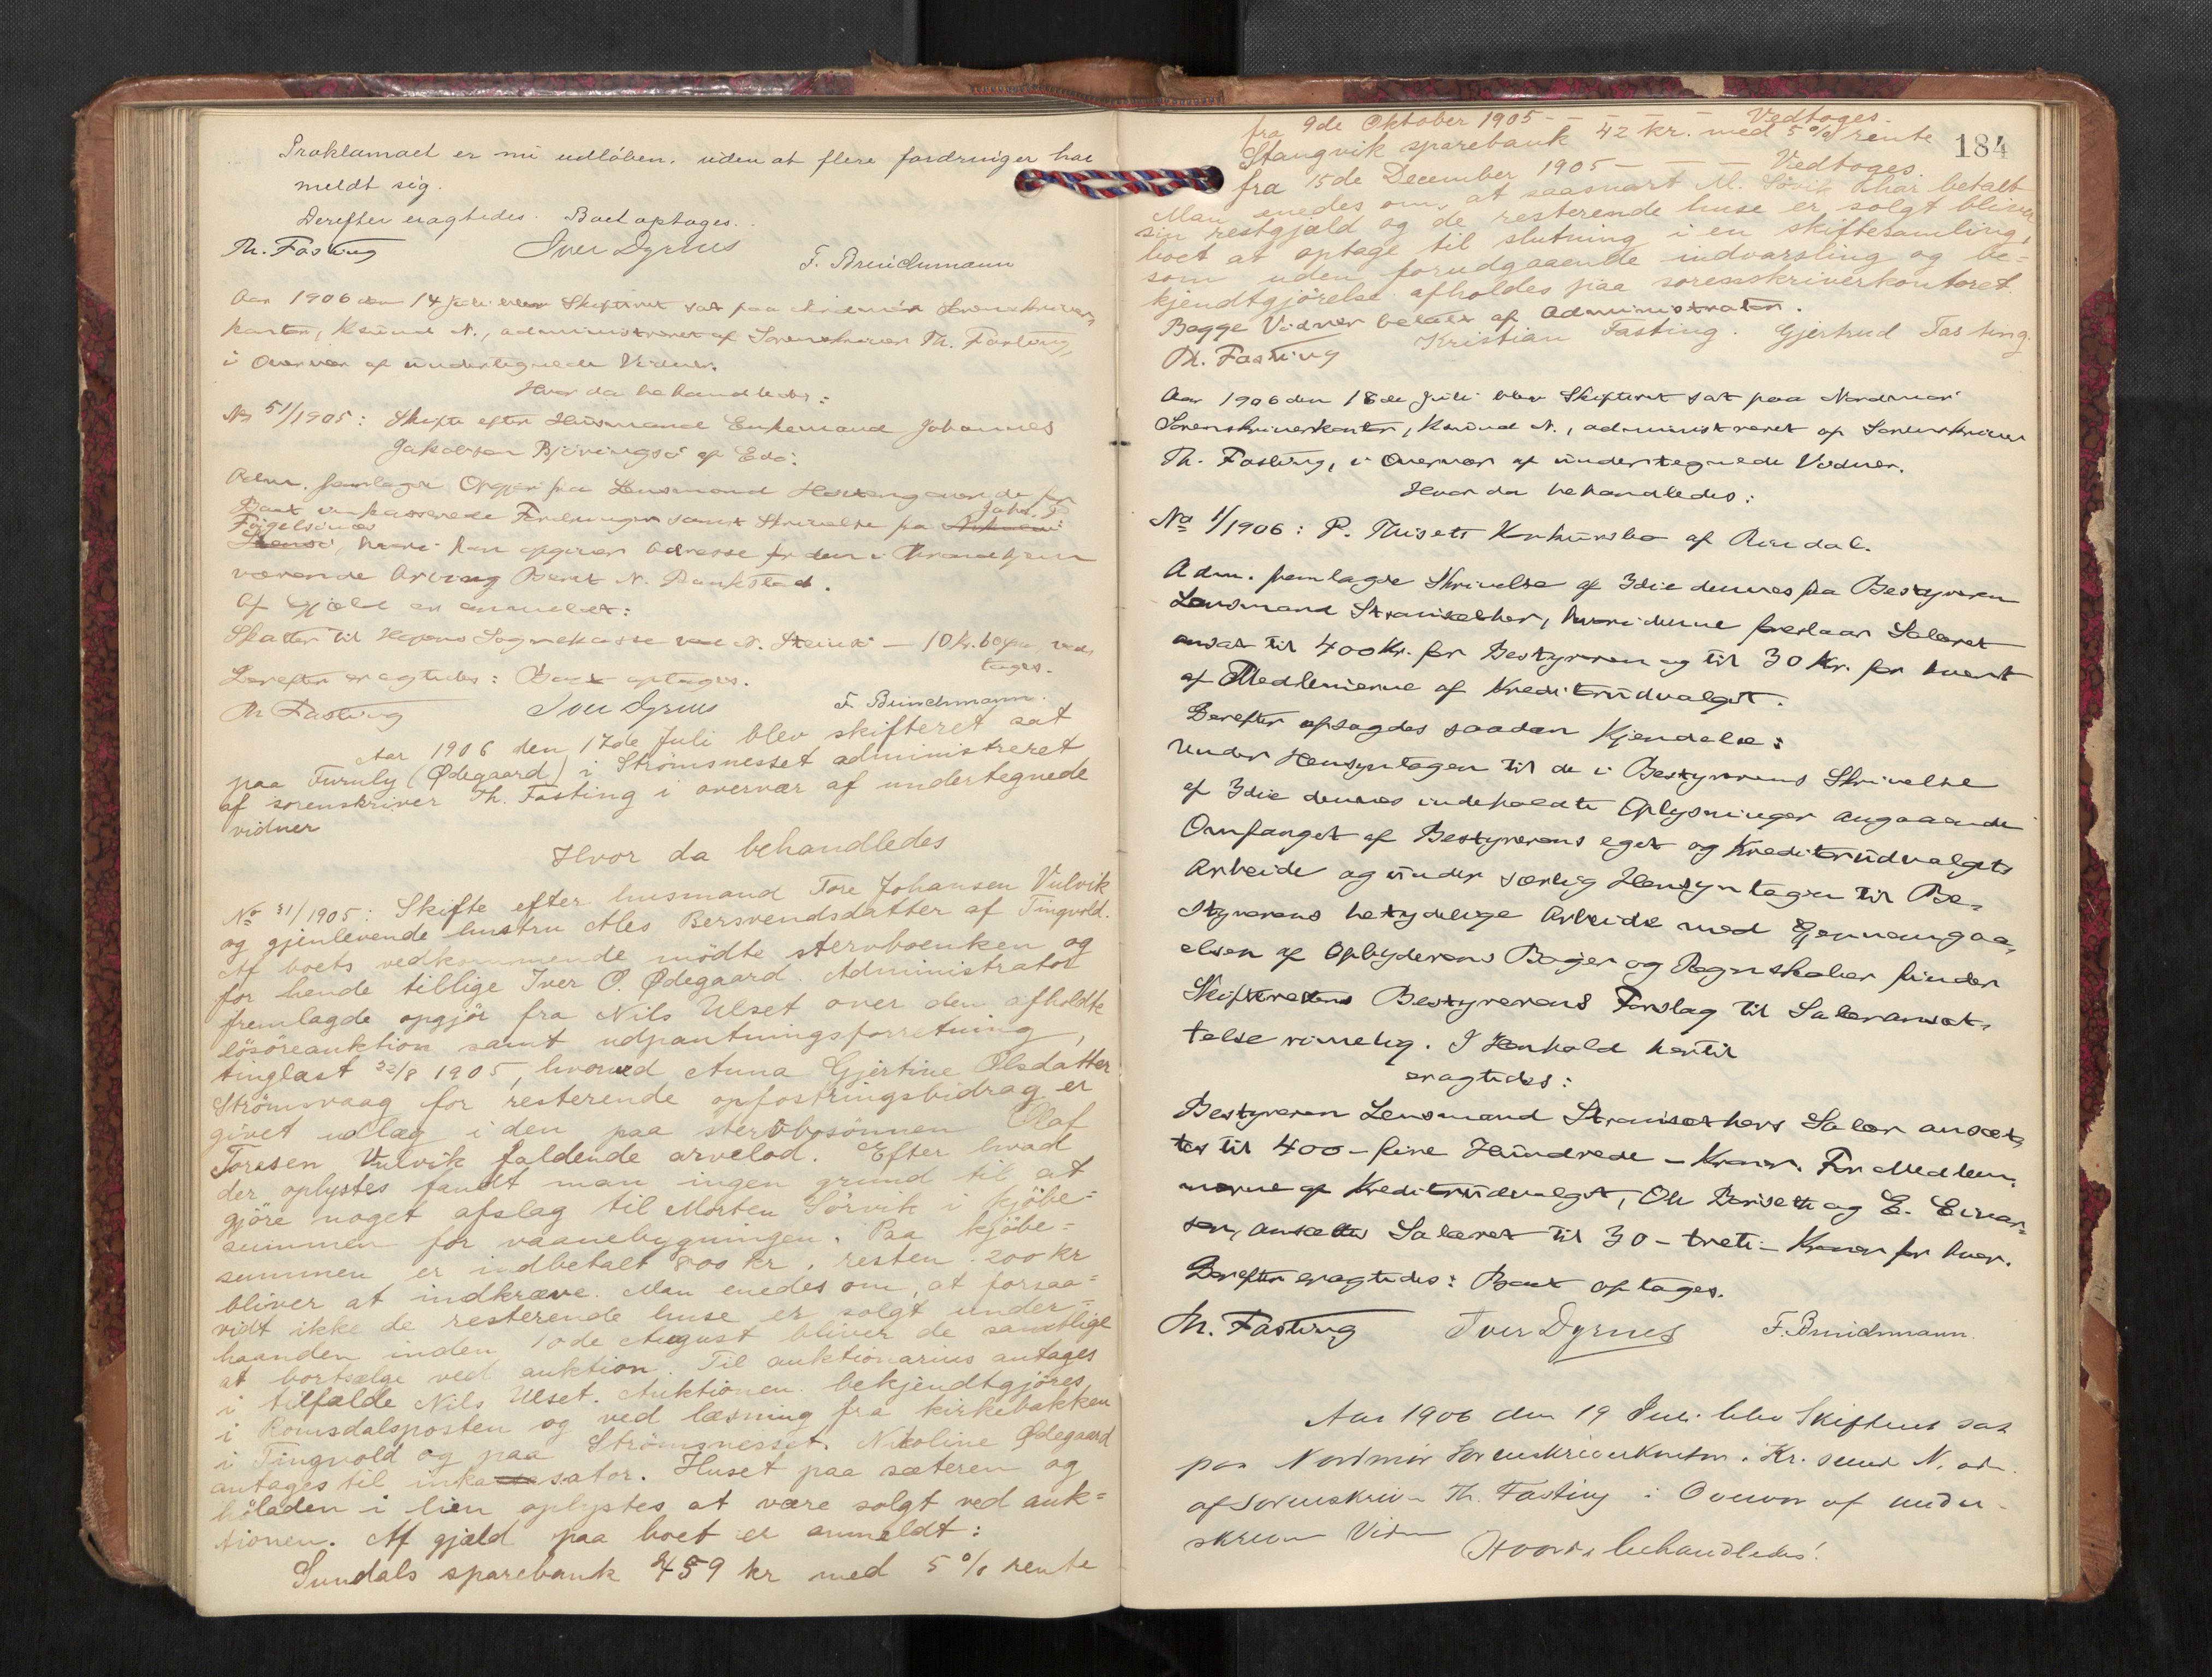 Proklamaet er nu udlöben, uden at flere fordringer har
meldt sig.
Derefter eragtedes. Boet optages.
Th. Fasting Iver Dyrnes F. Breichmann
Aar 1906 den 14 Juli blev Skifteret sat paa Nordmör Sorenskriver-
kontor, Ksund N., administreret af Sorenskriver Th. Fasting,
i Overvær af undertegnede Vidner.
Hvor da behandledes:
No 51/1905: Skifte efter Husmand Enkemand Johannes
Jakobsen Björingsö af Edö.
Adm. fremlagde Opgjör fra Lensmand over de for
Boet inkasserede Fordringer samt Skrivelse fra Joh. S.
Fuglesnæs
, hvori han opgiver Adresse for den i Trondhjem
værende Arving Beret N. Bankstad.
Af Gjæld er anmeldt:
Skatter til Hevens Sognekasse ved N. Stensö — 10 kr. 60 øre, ved-
tages.
Derefter eragtedes: Boet optages.
Th Fasting Iver Dyrnes F. Breichmann.
Aar 1906 den 17de Juli blev skifteret sat
paa Furuly (Ødegaard) i Strömsnesset administreret
af sorenskriver Th. Fasting i overvær af undertegnede
vidner
Hvor da behandledes
No 31/1905: Skifte efter husmand Tore Johansen Vulvik
og gjenlevende hustru Ales Bersvendsdatter af Tingvold.
Af boets vedkommende mödte stervboenken og
for hende tillige Iver O. Ødegaard. Administrator
fremlagde opgjör fra Nils Ulset over den afholdte
lösöreauktion samt udpantningsforretning,
tinglæst 22/8 1905, hvorved Anna Gjertine Olsdatter
Strömsvaag for resterende opfostringsbidrag er
givet udlæg i den paa stervbosönnen Olaf
Toresen Vulvik faldende arvelod. Efter hvad
der oplystes fandt man ingen grund til at
gjöre noget afslag til Morten Sörvik i kjöbe=
summen for vaanebygningen. Paa kjöbe=
summen er indbetalt 800 kr, resten 200 kr
bliver at indkræve. Man enedes om, at forsaa=
vidt ikke de resterende huse er solgt under=
haanden inden 10de August bliver de samtlige
at bortsælge ved auktion. Til auktionarius antages
i tilfælde Nils Ulset. Auktionen bekjendtgjöres
i Romsdalsposten og ved læsning fra kirkebakken
i Tingvold og paa Strömsnesset. Nikoline Ødegaard
antages til inkassator. Huset paa sæteren og
höladen i lien oplystes at være solgt ved auk=
tionen. Af gjæld paa boet er anmeldt:
Sundals sparebank 459 kr med 5 % rente
184
fra 9de Oktober 1905 - - - - Vedtoges.
Stangvik sparebank 42 kr. med 5 % rente
fra 15de December 1905 - - - Vedtoges.
Man enedes om, at saasnart M. Sörvik har betalt
sin restgjæld og de resterende huse er solgt bliver
boet at optage til slutning i en skiftesamling,
som uden forudgaaende indvarsling og be=
kjendtgjörelse afholdes paa sorenskriverkontoret.
Begge Vidner betalt af Administrator.
Th. Fasting Kristian Fasting. Gjertrud Fasting.
Aar 1906 den 18de Juli blev Skifteret sat paa Nordmör
Sorenskriverkontor, Ksund N., administreret af Sorenskriver
Th. Fasting, i Overvær af undertegnede Vidner.
Hvor da behandledes:
No 1/1906: P. Thisets Konkursbo af Rindal.
Adm. fremlagde Skrivelse af 3die dennes fra Bestyreren
Lensmand Strandsæther, hvori denne foreslaar Salæret
ansat til 400 Kr. for Bestyreren og til 30 Kr. for hvert
af Medlemmerne af Kreditorudvalget.
Derefter afsagdes saadan Kjendelse:
Under Hensyntagen til de i Bestyrerens Skrivelse
af 3die dennes indeholdte Oplysninger angaaende
Omfanget af Bestyrerens eget og Kreditorudvalgets
Arbeide og under særlig Hensyntagen til Be-
styrerens betydelige Arbeide med Gjennemgaa-
elsen af Opbyderens Böger og Regnskaber finder
Skifteretten Bestyrerens Forslag til Salæransæt-
telse rimelig. I Henhold hertil
eragtedes:
Bestyreren Lensmand Strandsæthers Salær ansæt-
tes til 400 - fire Hundrede - Kroner. For Medlem-
merne af Kreditorudvalget, Ole Bariseth og E. Einar-
sen, ansættes Salæret til 30 - treti - Kroner for hver.
Derefter eragtedes: Boet optages.
Th. Fasting Iver Dyrnes F. Breichmann.
Aar 1906 den 19 Juli blev Skifteret sat
paa Nordmör Sorenskriverkontor. Kr. sund N. adm.
af Sorenskriver Th. Fasting i Overvær af under-
skrevne Vidner
Hvorda behandledes: